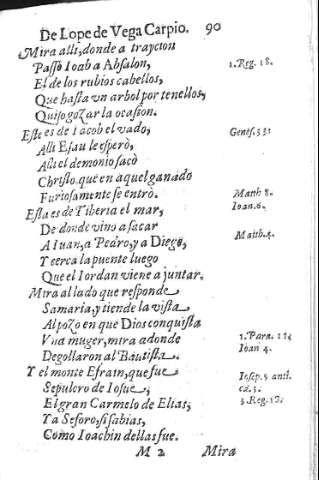 De Lope de Vega Carpio. 90
Mira alli, donde a traycion
Passò Ioab a Absalon,
El de los rubios cabellos,
Que hasta vn arbol por tenellos,
Quiso gozar la ocasion.
Este es de Iacob el vado,
Alli Esau le esperò,
Alli el demonio sacò
Christo, que en aquel ganado
Furiosamente se entrò.
Esta es de Tiberia el mar,
De donde vino a sacar
A Iuan, a Pedro, y a Diego,
Y cerca la puente luego
Que el Iordan viene a juntar.
Mira al lado que responde
Samaria, y tiende la vista
Al pozo en que Dios conquista
Vna muger, mira adonde
Degollaron al Bautista.
Y el monte Efrain, que fue
Sepulcro de Iosue,
El gran Carmelo de Elias,
Ya Seforo, si sabias,
Como Ioachin dellas fue.
M 2 Mira
2. Reg. 18.
Genes. 33:
Matth 8.
Ioan. 6.
Matth. 4.
Ioan 4.
Iosep. 5 anti.
3. Reg. 18.